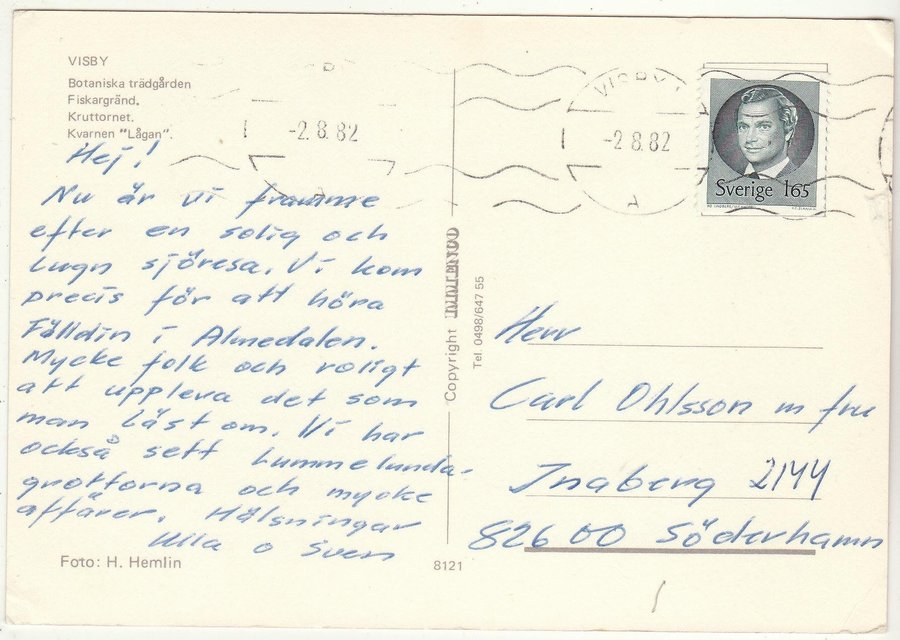 VISBY
Botaniska trädgården
Fiskargränd.
Kruttornet.
Kvarnen "Lågan".
Hej!
Nu är vi framme
efter en solig och
lugn sjöresa. Vi kom
precis för att höra
Fälldin i Almedalen.
Mycke folk och roligt
att uppleva det som
man läst om. Vi har
också sett Lummelunda-
grottorna och mycke
affärer. Hälsningar
Ulla o Sven
Foto: H. Hemlin
8121
Copyright
Tel 0498/647 55
-2.8.82
VISBY 1
-2 8.82
A
Sverige 165
Herr
Carl Ohlsson m fru
Inaberg 2144
826 00 Söderhamn